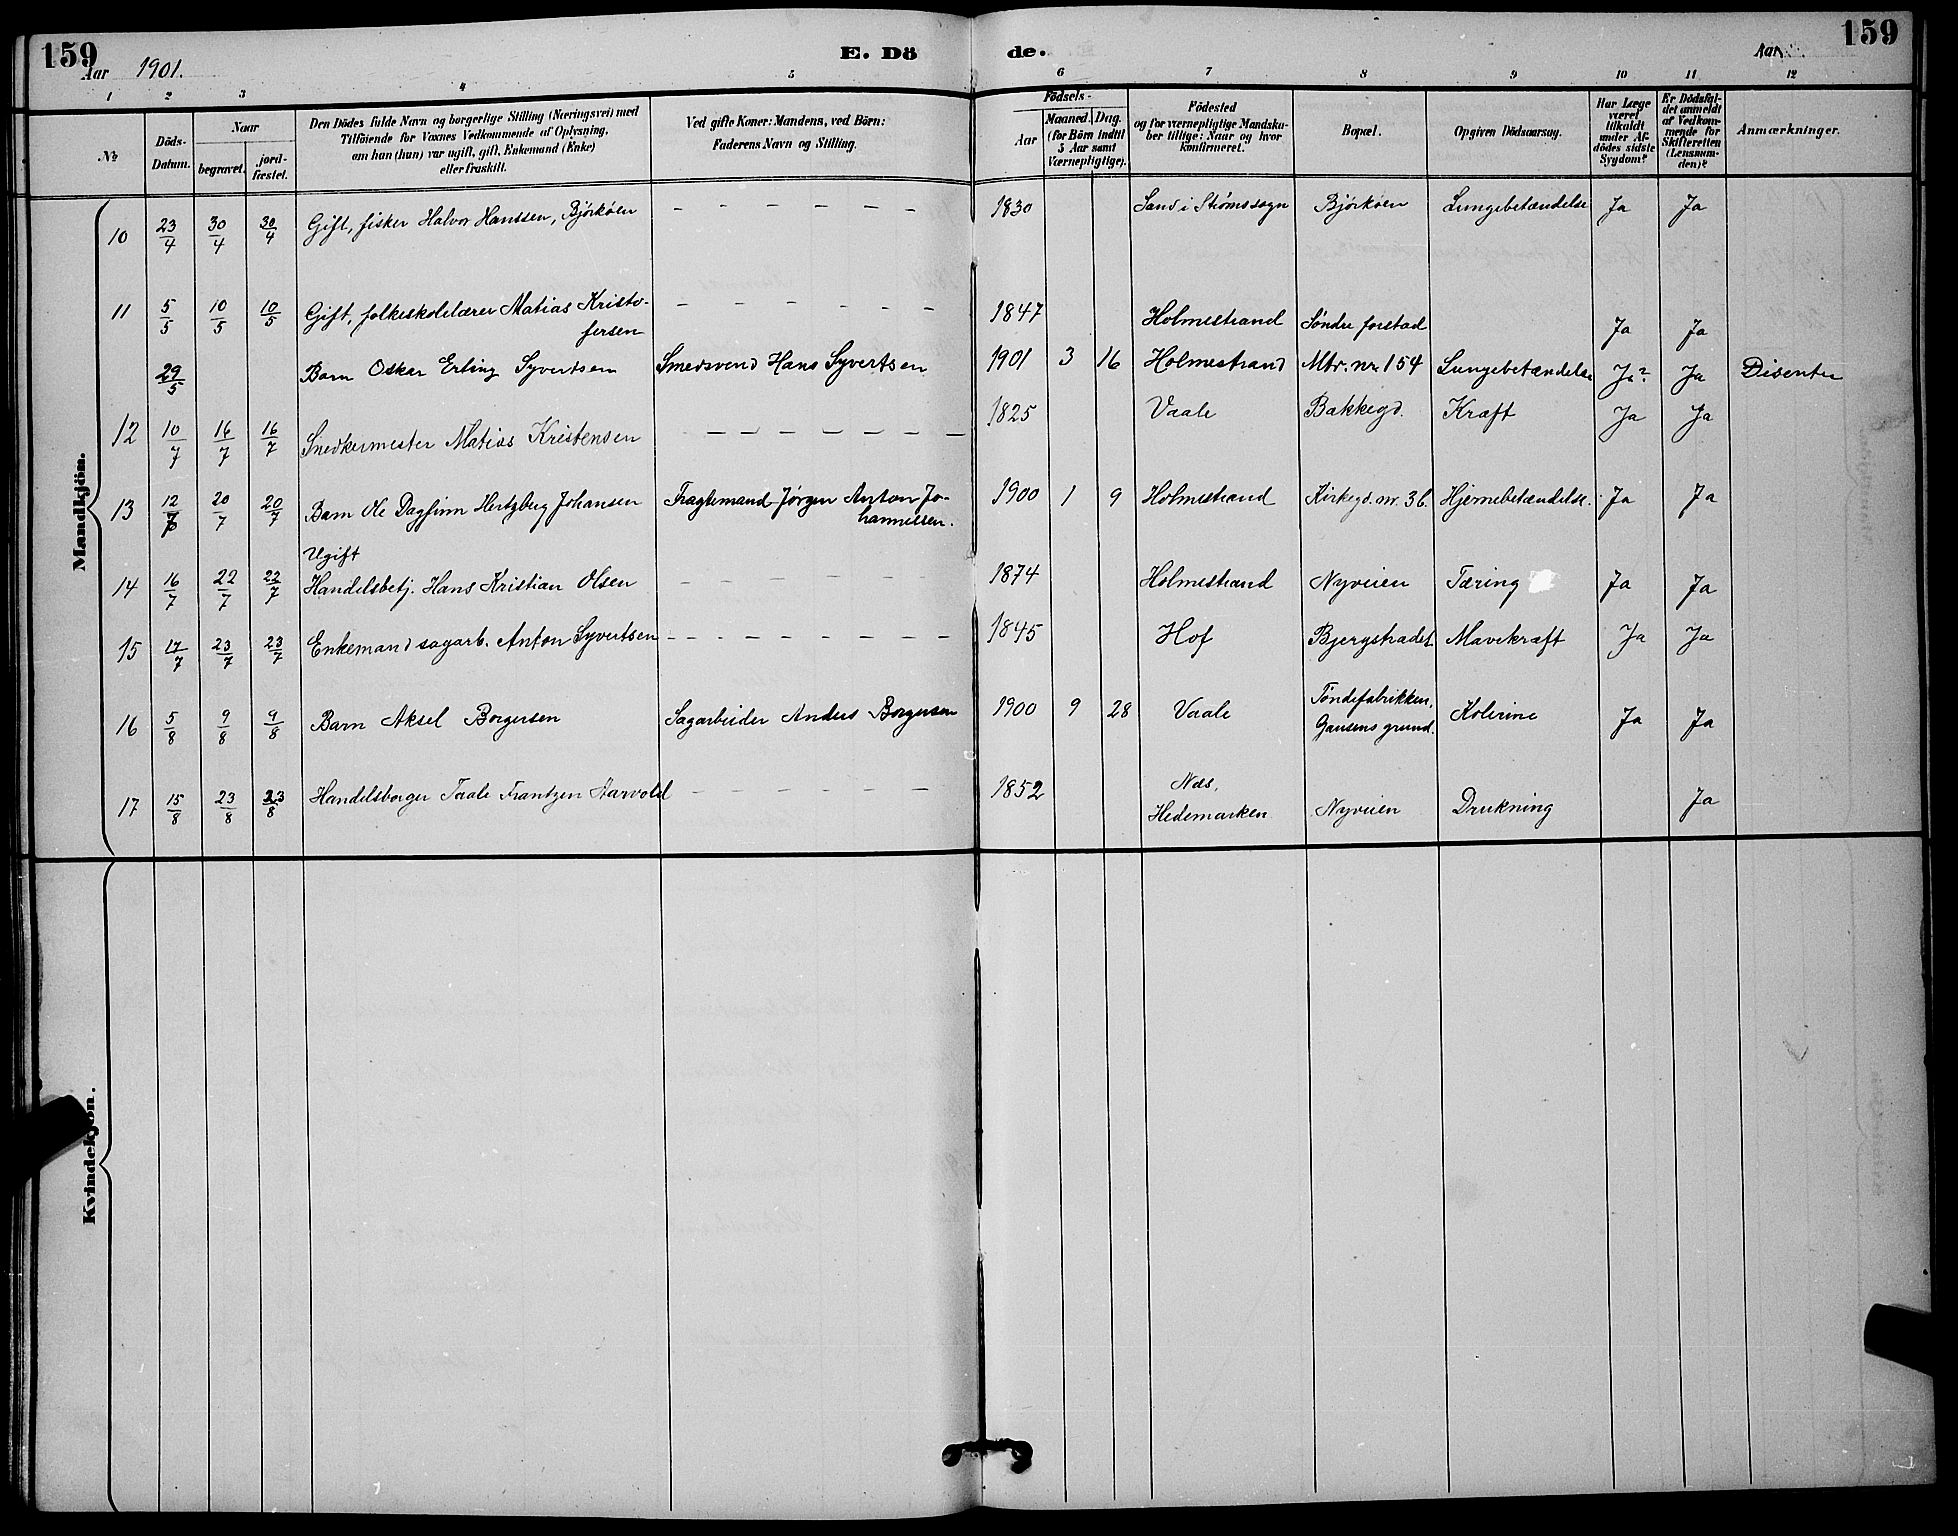 159
Aar 1901.
E. Dö
de.
Aar
159
1 2 3 4 5 6 7 8 9 10 11 12
№
Döds-Datum.
Naar
begravet.
jord-fæstet.
Den Dödes fulde Navn og borgerlige Stilling (Næringsvei) med
Tilföiende for Voxnes Vedkommende af Oplysning,
om han (hun) var ugift, gift, Enkemand (Enke)
eller fraskilt.
Ved gifte Koner: Mandens, ved Börn:
Faderens Navn og Stilling.
Födsels-
Aar
Maaned. Dag.
(for Börn indtil
5 Aar samt
Værnepligtige).
Födested
og for værnepligtige Mandska-
ber tillige: Naar og hvor
konfirmeret.
Bopæl.
Opgiven Dödsaarsag.
Har Læge
været
tilkaldt
under Af-
dödes sidste
Sygdom?
Er Dödsfal-
det anmeldt
af Vedkom-
mende for
Skifteretten
(Lensman-
den)?
Anmærkninger.
Mandkjön.
10 23/4 30/4 30/4 Gift, fisker Halvor Hanssen, Bjórkóen - - - - - - - 1830 Sand i Strømssogn Bjórkóen Lungebetændelse Ja Ja
11 5/5 10/5 10/5 Gift, folkeskolelærer Matias Kristo- - - - - - - - 1847 Holmestrand Søndre forstad Ja Ja
fersen
29/5 Barn Oskar Erling Syvertsen Smedsvend Hans Syvertsen 1901 3 16 Holmestrand Mtr. nr. 154 Lungebetændelse Ja? Ja Disenter
12 10/7 16/7 16/7 Snedkermester Matias Kristensen - - - - - - - 1825 Vaale Bakkegd. Kræft Ja Ja
13 12/7 20/7 20/7 Barn Ole Dagfinn Hertzberg Johansen Fragtemand Jørgen Anton Jo- 1900 1 9 Holmestrand Kirkegd. nr. 36. Hjernebetændelse. Ja Ja
hannessen.
Ugift
14 16/7 22/7 22/7 Handelsbetj. Hans Kristian Olsen - - - - - - - 1874 Holmestrand Nyveien Tæring Ja Ja
15 17/7 23/7 23/7 Enkemand sagarb. Anton Syvertsen - - - - - - - - 1845 Hof Bjergstradet Mavekræft Ja Ja
16 5/8 9/8 9/8 Barn Aksel Borgersen Sagarbeider Anders Borgersen 1900 9 28 Vaale Tøndefabrikken, Kolerine Ja Ja
Gausens grund.
17 15/8 23/8 23/8 Handelsborger Taale Frantzen Aarvold - - - - - - 1852 Næs, Nyveien Drukning Ja
Hedemarken
Kvindekjön.